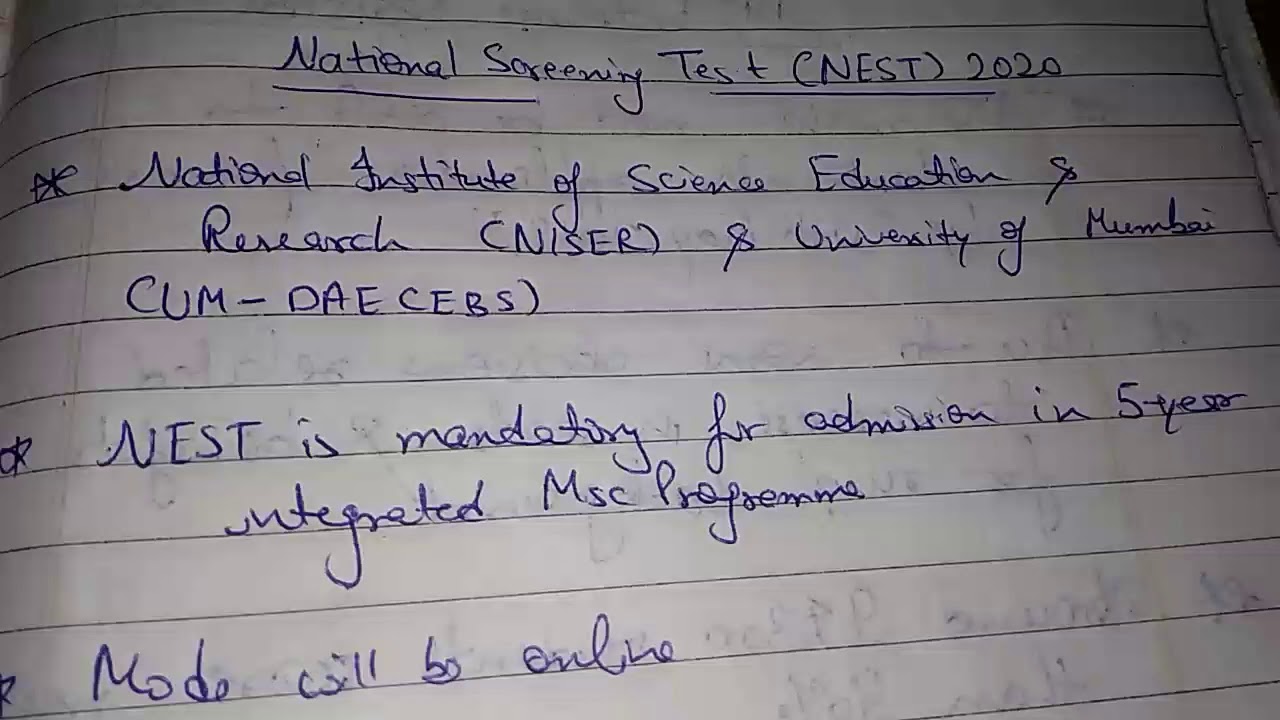 National Screening Test (NEST) 2020
* National Institute of Science Education &
Research (NISER) & University of Mumbai
(UM-DAE CEBS)
* NEST is mandatory for admission in 5-year
integrated Msc Programme
* Mode will be online